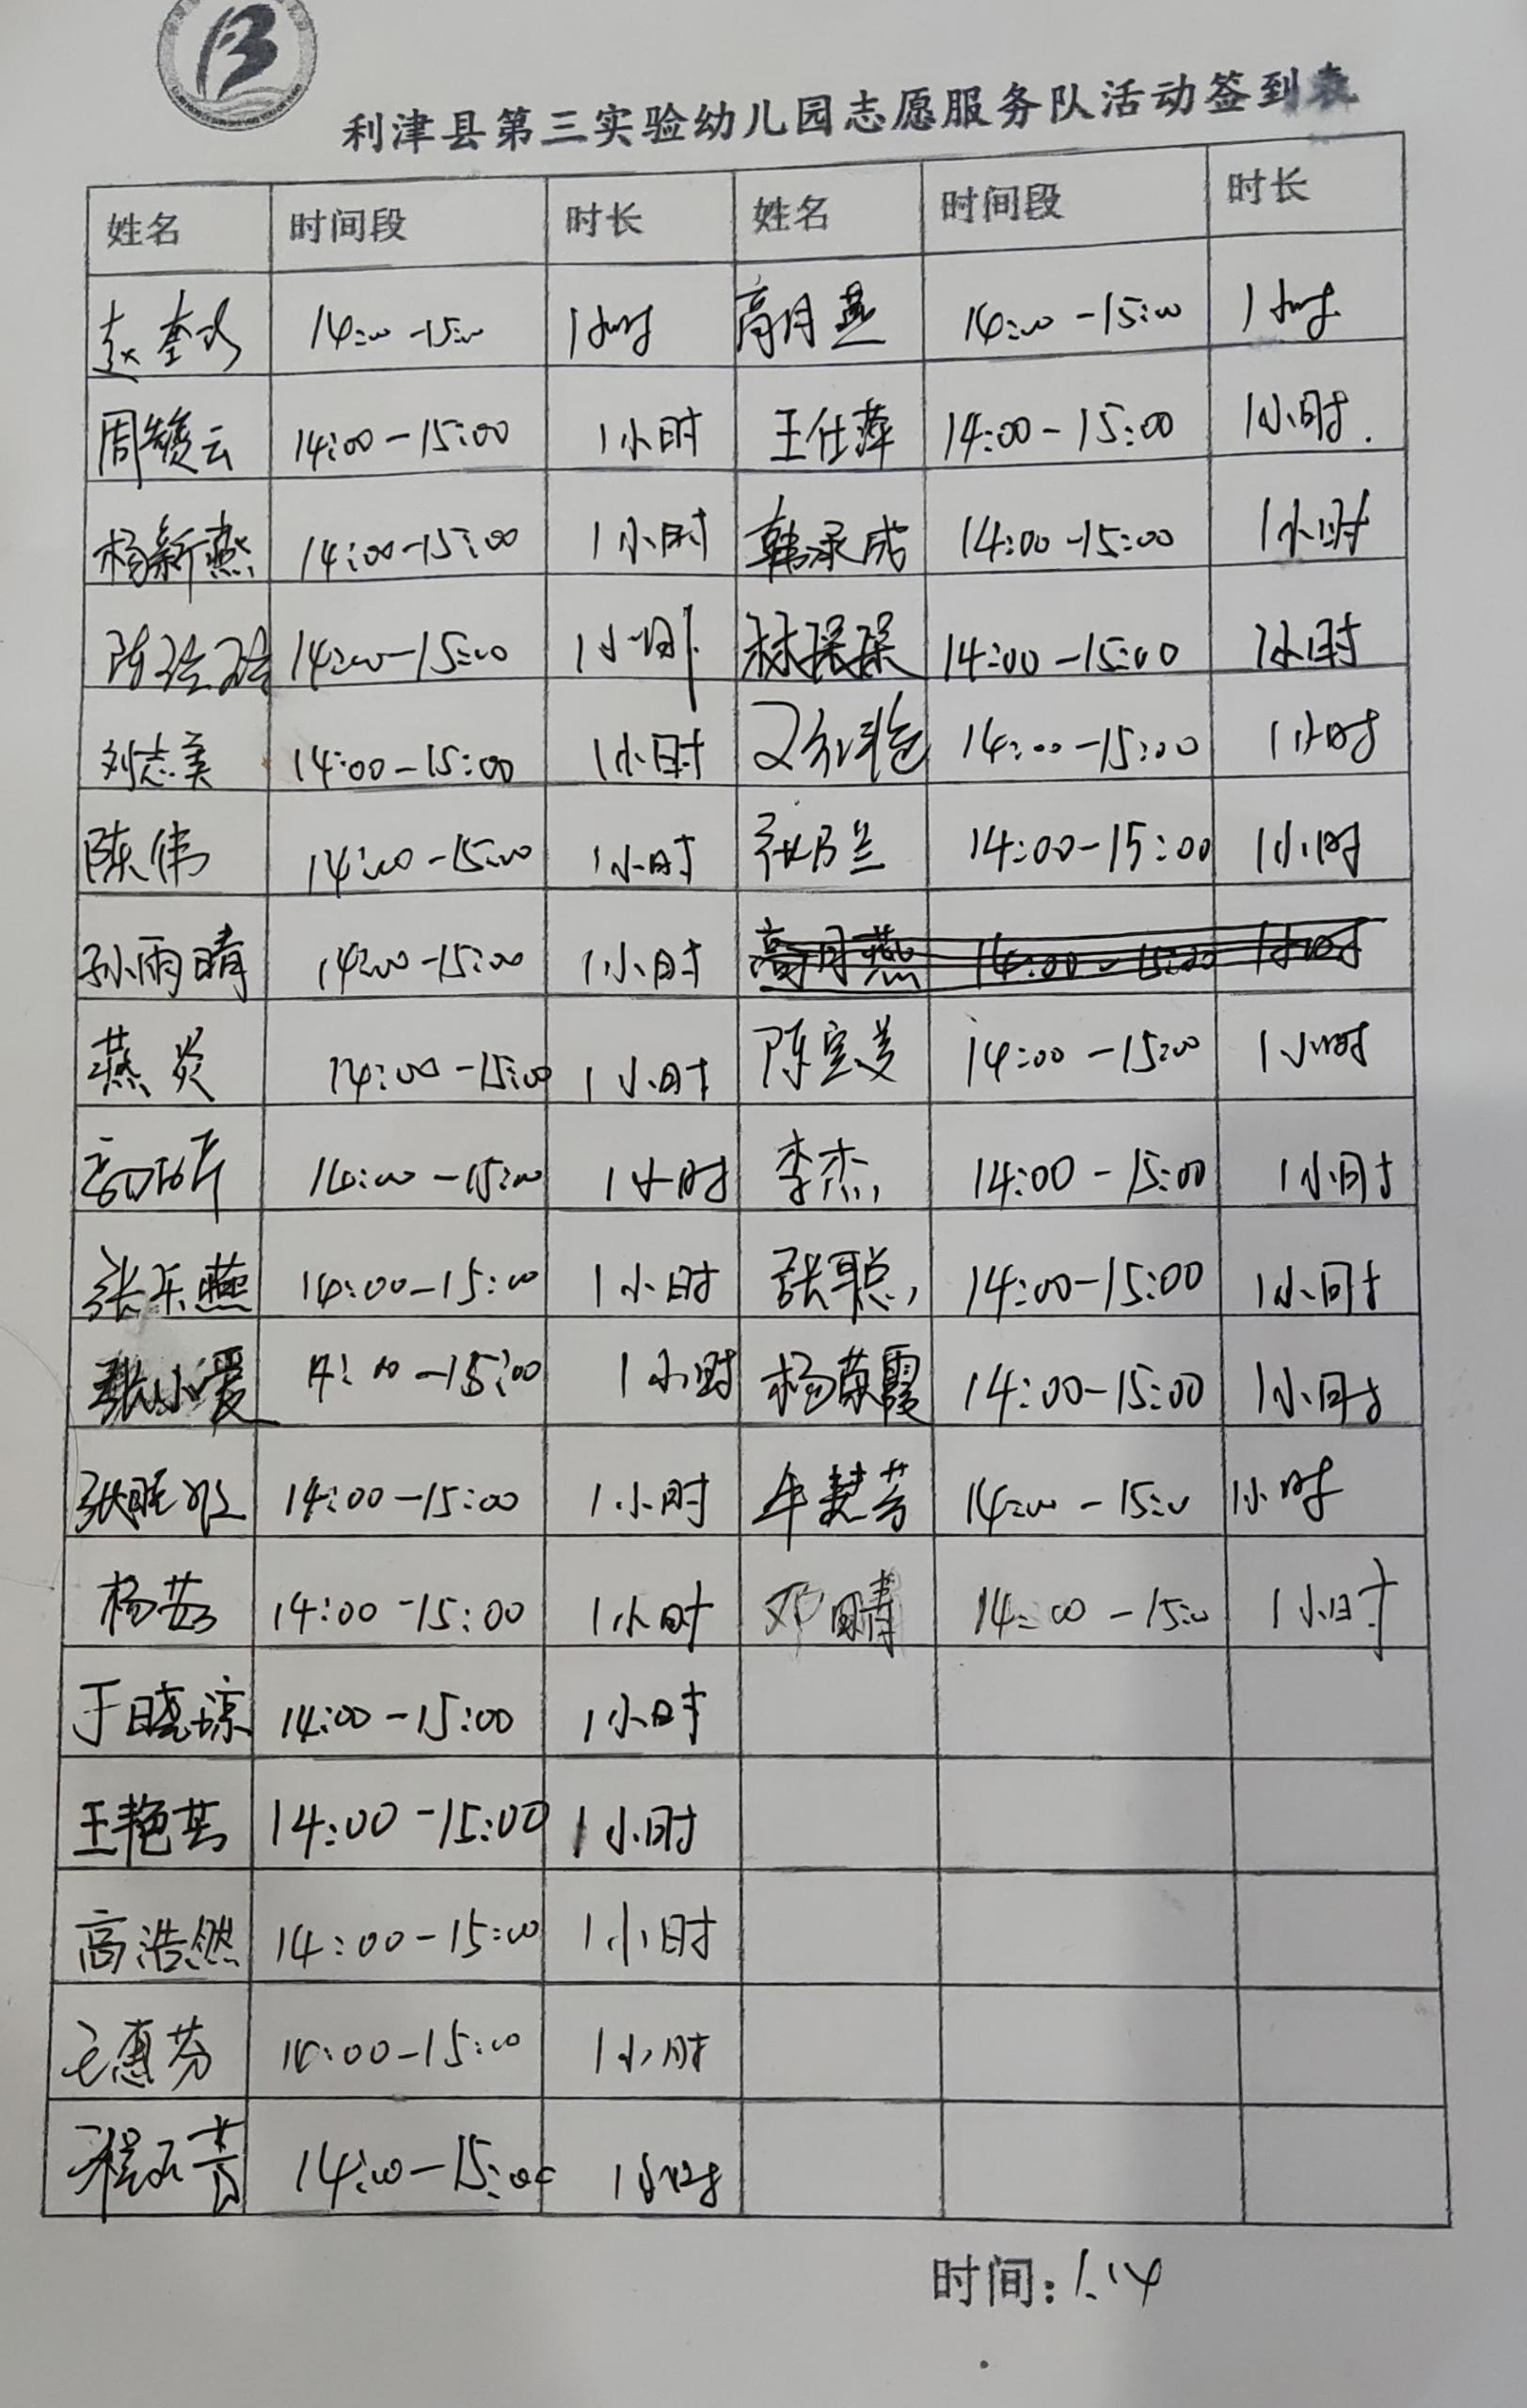 利津县第三实验幼儿园志愿服务队活动签到表
姓名 时间段 时长 姓名 时间段 时长
14:00-15:00 1小时 高月燕 14:00-15:00 1小时
周云 14:00-15:00 1小时 王仕萍 14:00-15:00 1小时.
杨新燕 14:00-15:00 1小时 韩承成 14:00-15:00 1小时
陈玲玲 14:00-15:00 1小时 林琛琛 14:00-15:00 1小时
刘志美 14:00-15:00 1小时 14:00-15:00 1小时
陈伟 14:00-15:00 1小时 张乃兰 14:00-15:00 1小时
孙雨晴 14:00-15:00 1小时 高月燕 14:00-15:00 1小时
燕炎 14:00-15:00 1小时 陈宝美 14:00-15:00 1小时
14:00-15:00 1小时 李杰 14:00-15:00 1小时
张乐燕 14:00-15:00 1小时 张聪 14:00-15:00 1小时
张小爱 14:00-15:00 1小时 杨荣霞 14:00-15:00 1小时
张 14:00-15:00 1小时 牟慧芳 14:00-15:00 1小时
杨茹 14:00-15:00 1小时 邓晴 14:00-15:00 1小时
于晓琼 14:00-15:00 1小时
王艳芸 14:00-15:00 1小时
高浩然 14:00-15:00 1小时
毛惠芬 14:00-15:00 1小时
14:00-15:00 1小时
时间：1.14